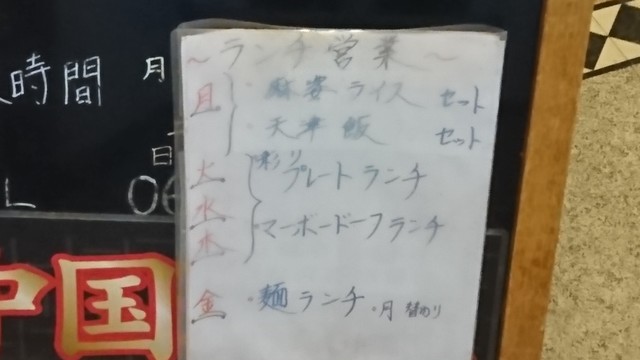 ～ランチ営業～
月
・麻婆ライス セット
・天津飯 セット
火
水
木
彩り
プレートランチ
マーボードーフランチ
金
・麺ランチ ・月替わり
時間 月
日
L 06
中国